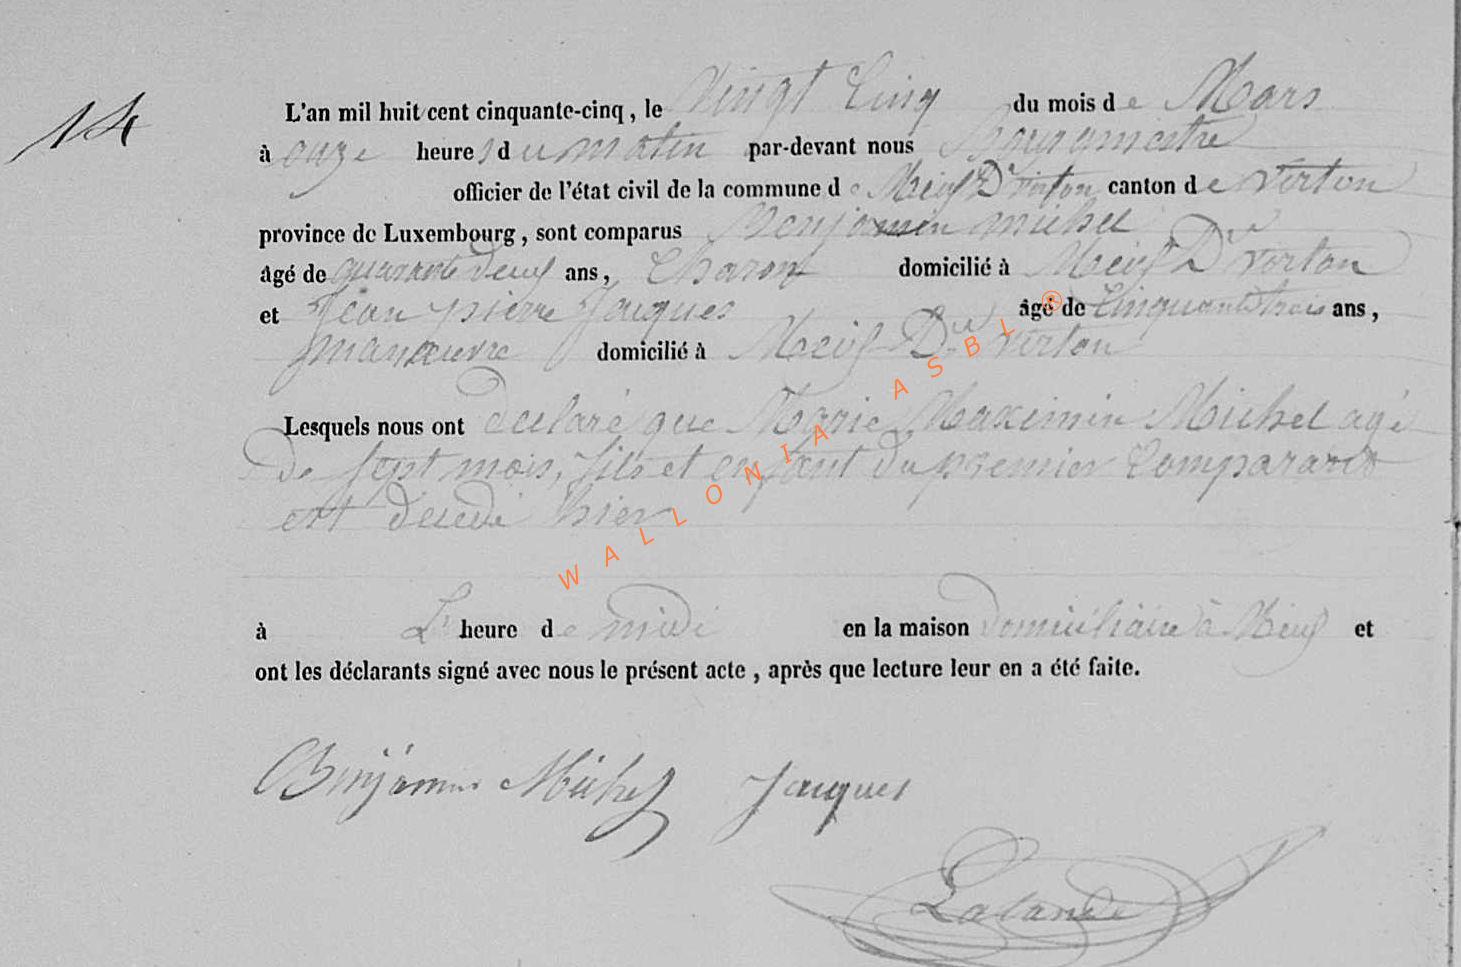 14
L'an mil huit cent cinquante-cinq, le Vingt Cinq du mois de Mars
à onze heures du matin par-devant nous Bourgmestre
officier de l'état civil de la commune de Meix Dt virton canton de Virton
province de Luxembourg, sont comparus Benjamin michel
âgé de quarante deux ans, Charon domicilié à Meix Dt Virton
et Jean pierre Jacques âgé de Cinquante trois ans,
manœuvre domicilié à Meix Dt virton
Lesquels nous ont déclaré que Marie Maximin Michel agé
de sept mois, fils et enfant du premier Comparant
est décédé hier
à L' heure de midi en la maison domiciliaire à Meix et
ont les déclarants signé avec nous le présent acte, après que lecture leur en a été faite.
Benjamin Michel Jacques
Lalande
WALLONIA ASBL ®